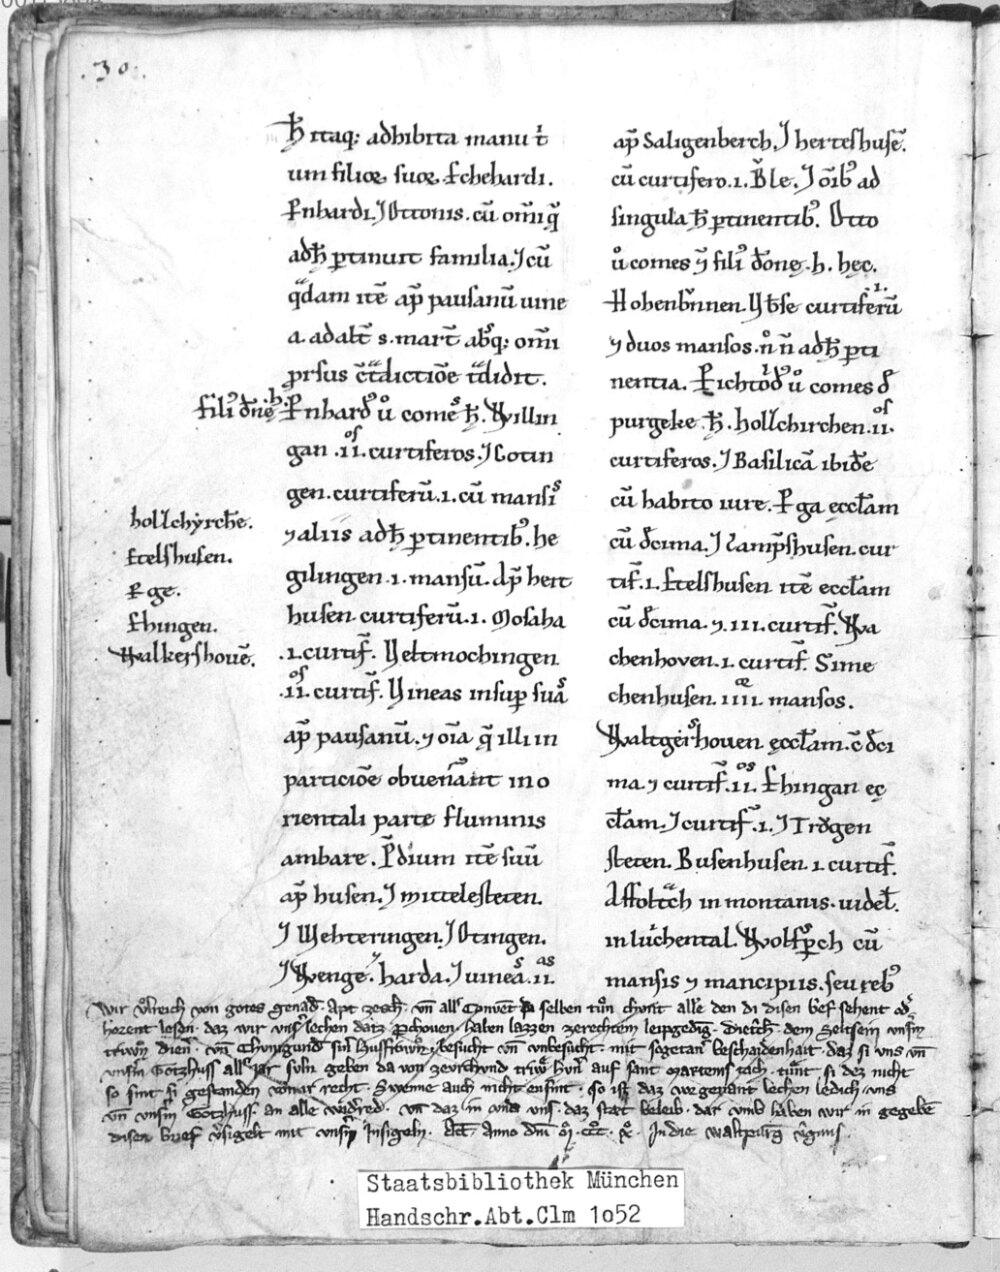 .30.
ħ itaq; adhibita manu t̍
um filioꝝ suoꝝ. Ekkehardi.
Ęnhardi. ⁊ Ottonis. cū om̄i q̄
adħ ꝑtinuit familia. ⁊ cū
qdam itē ap̄ pausanū uine
a. ad alt̄ s. mart̄ abq; om̄i
ꝓrsus ctdictiōe tdidit.
filiꝰ dn̄e .h. Ęnhardꝰ ů comeˢ ħ. Willin
gan .ii.ᵒˢ curtiferos. ⁊ Lotin
gen. curtiferū .i. cū mansiˢ
⁊ aliis adħ ꝑtinentibꝰ. he
gilingen .i. mansū. ap̄ hert
husen curtiferū .i. Mosaha
.i. curtif̄. Y eltmochingen
.ii.ᵒˢ curtif̄. Uineas insuꝑ suaˢ
ap̄ pausanū. ⁊ oīa q̄ illi in
particiōe obuenant in o
rientali parte fluminis
ambare. P̄dium itē suū
ap̄ husen. ⁊ mittelesteten.
⁊ Wehteringen. ⁊ Otingen.
⁊ Wenge. harda. ⁊ uineaˢ .ii.ᵃˢ
hollchẏrch̄e.
Etelshusen.
Ęge.
Ehingen.
Walkershouē.
ap̄ Saligenberch, ⁊ herteshusē.
cū curtifero .i. B̍le. ⁊ oībꝰ ad
singula ħ ꝑtinentibꝰ. Otto
ů comes ⁊ filiꝰ dōne .h. hęc.
Hohenbnnen. Ybse curtiferū .i.
⁊ duos mansos. n̊ n̄ adħ ꝑti
nentia. Ęichtoldꝰ ů comes đ
purgeke. ħ. hollchirchen .ii.ᵒˢ
curtiferos. ⁊ Basilicā ibidē
cū habito iure. Ęga ęccłam
cū dcima. ⁊ Lamp̄shusen. cur
tif̄ .i. Etelshusen itē eccłam
cū dcima. ⁊ .iii. curtif̄. Wa
chenhoven .i. curtif̄. Sime
chenhusen .iiii.ᵒʳ mansos.
Waltgershouen ęccłam. c̄ dci
ma ⁊ curtif̄ .ii.ᵒˢ Ehingan ec
cłam. ⁊ curtif̄ .i. ⁊ Trogen
steten. Busenhusen .i. curtif̄.
Affoltch in montanis. uideł.
in luchental. Wolfpch cū
mansis ⁊ mancipiis. seu rebꝰ
Wir Vlreich von gotes genad apt ze vn̄ all Convent da selben tůn chunt alle den di disen brief sehent od
horent lesen. daz wir vnser lechen datz pchouen haben lazzen ze rechtem leipgeding dem vnserm
trewn dien vn̄ Chvnigund sin Husfrown besucht vn̄ vnbesucht. mit sogetan beschaidenhait. daz si vns vn̄
vnserm Gotzhuss all jar suln geben da von auf sant Martens tach. tunt si dez nicht
so sint si gestanden von ir recht. Swenne auch nicht ensint. so ist daz vorgenant lechen ledich vns
vn̄ vnserm Gotzhuss. an alle widred. vn̄ daz in vnd vns daz stæt beleib. dar vmb haben wir in gegeben
disen brief vsigelt mit vnserm Insigeln. Act. Anno dn̄i Mͦ. CCCͦ. Xͦ. In die Waltpurg vginis.
Staatsbibliothek München
Handschr.Abt.Clm 1o52